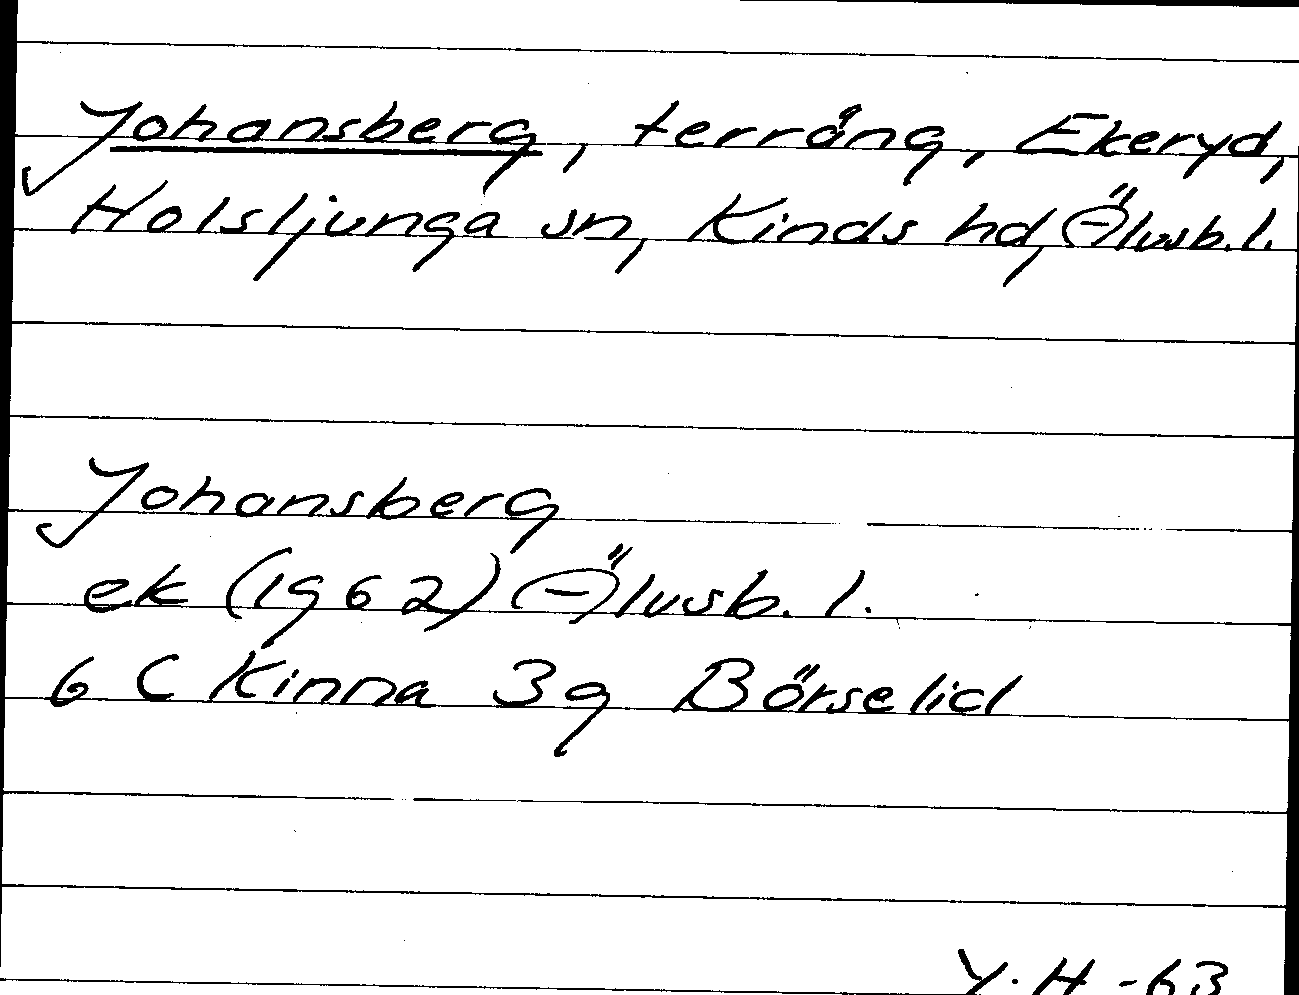 Johansberg, terräng, Ekeryd,
Holsljunga sn, Kinds hd, Älvsb. l.
Johansberg
ek (1962) Älvsb. l.
6 C Kinna 3g Börselid
Y. H -63